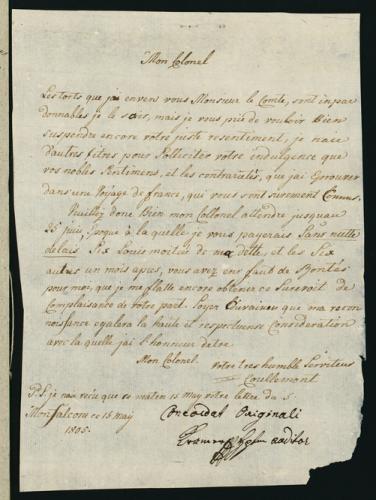 Mon Colonel
Les torts que j'ai envers vous Monsieur le Comte, sont inpar
donnables je le sais, mais je vous prie de vouloir Bien
suspendre encore votre juste resentiment, je n'aie
d'autres titres pour solliciter votre indulgence que
vos nobles sentimens, et les contrarietés, que j'ai Eprouver
dans une Voyage de france, qui vous sont surement Connus.
Veuillez donc Bien mon Collonel attendre jusqu'au
juin, Epoque à la quelle je vous payerais sans nulle
delais Six Louis moitié de ma dette, et les Six
autres un mois apres, vous avez eus tant de Bontés
pour moi, que je me flatte encore obtenir ce Surcroit de
Complaisance de votre part. Soyez Convaincu que ma recon
noissance egalera la haute et respectueuse Consideration
avec la quelle j'ai l'honneur detre
Mon Colonel.
Votre tres humble Serviteur
P.S. je n'ai reçue que ce matin 15 may votre lettre du 5.
Monfalcon ce 15 may
1805.
Originali
auditor